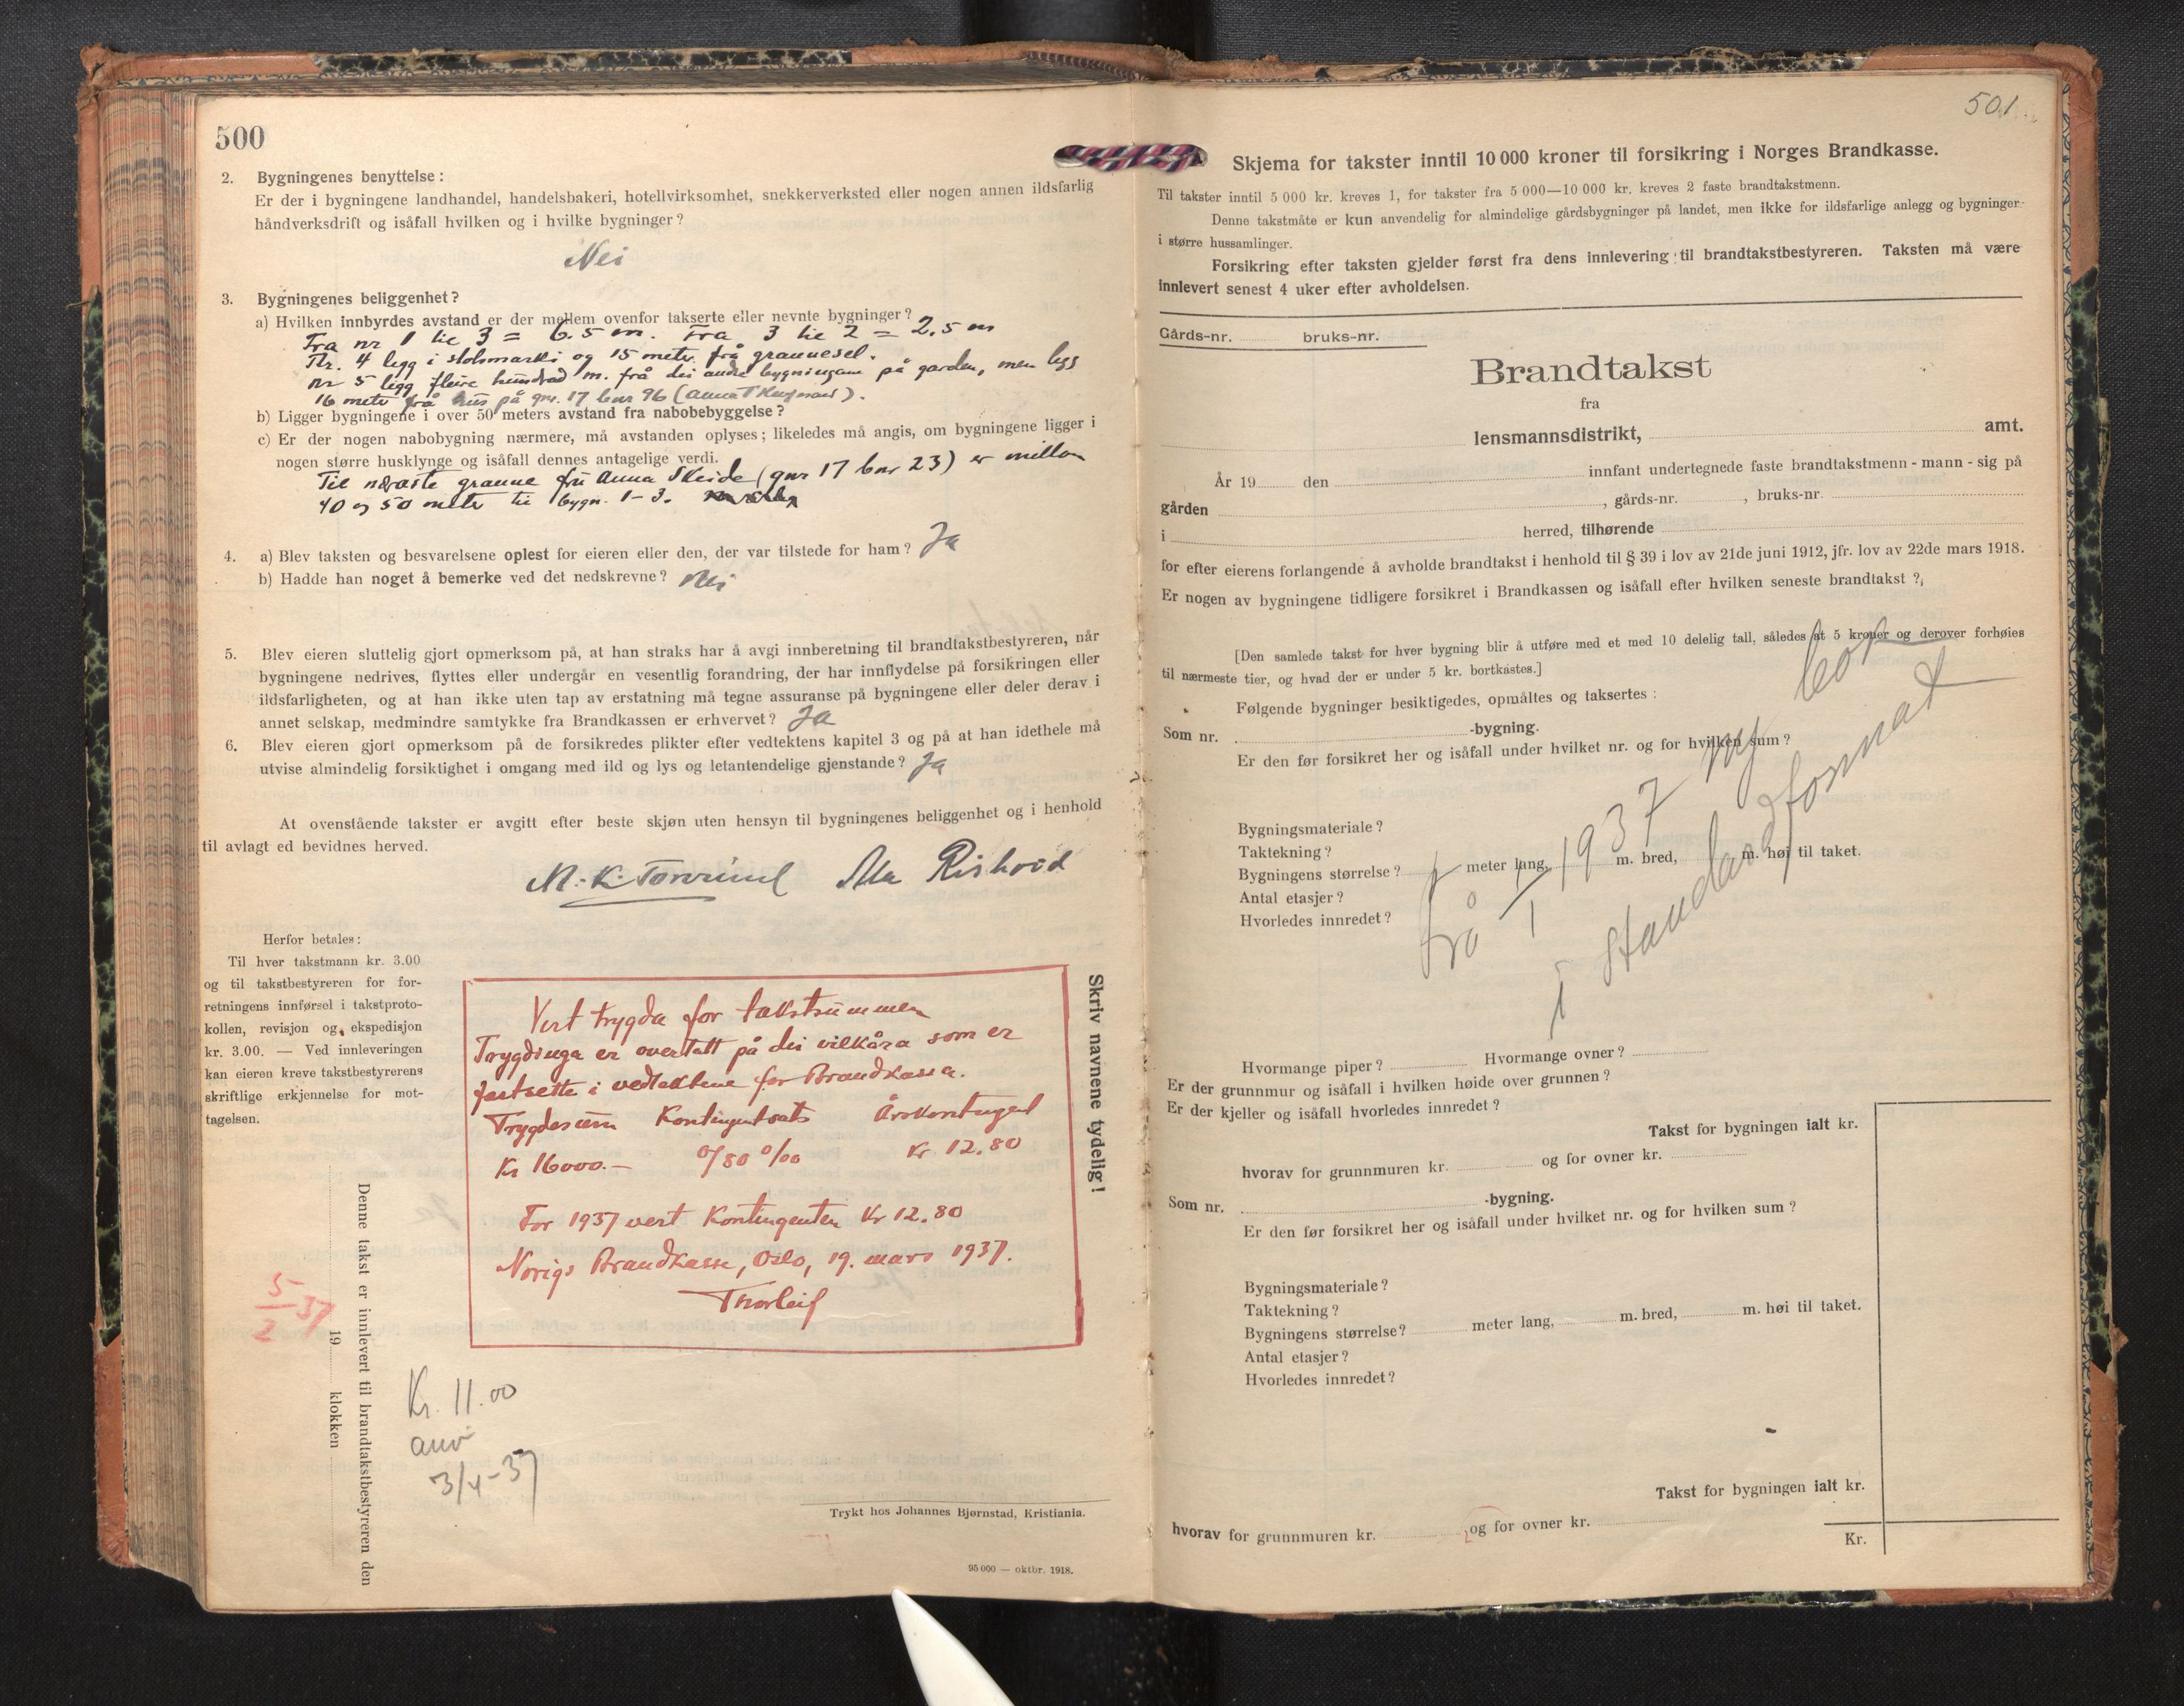 500
2. Bygningenes benyttelse:
Er der i bygningene landhandel, handelsbakeri, hotellvirksomhet, snekkerverksted eller nogen annen ildsfarlig
håndverksdrift og isåfall hvilken og i hvilke bygninger?
Nei
3. Bygningenes beliggenhet?
a) Hvilken innbyrdes avstand er der mellem ovenfor takserte eller nevnte bygninger?
Fra nr 1 til 3 = 6.5 m. Fra 3 til 2 = 2.5 m
Nr. 4 legg i stolsmarki og 15 meter frå grannesel.
nr 5 ligg fleire hundrad m. frå dei andre bygningane på garden, men ligg
16 meter frå hus på gnr. 17 bnr 96 (Anna T
b) Ligger bygningene i over 50 meters avstand fra nabobebyggelse?
c) Er der nogen nabobygning nærmere, må avstanden oplyses; likeledes må angis, om bygningene ligger i
nogen større husklynge og isåfall dennes antagelige verdi.
Til næraste granne frú Anna Skeide (gnr 17 bnr 23) er millom
40 og 50 meter til bygn. 1-3.
4. a) Blev taksten og besvarelsene oplest for eieren eller den, der var tilstede for ham? Ja
b) Hadde han noget å bemerke ved det nedskrevne? Nei
5. Blev eieren sluttelig gjort opmerksom på, at han straks har å avgi innberetning til brandtakstbestyreren, når
bygningene nedrives, flyttes eller undergår en vesentlig forandring, der har innflydelse på forsikringen eller
ildsfarligheten, og at han ikke uten tap av erstatning må tegne assuranse på bygningene eller deler derav i
annet selskap, medmindre samtykke fra Brandkassen er erhvervet? Ja
6. Blev eieren gjort opmerksom på de forsikredes plikter efter vedtektens kapitel 3 og på at han idethele må
utvise almindelig forsiktighet i omgang med ild og lys og letantendelige gjenstande? Ja
At ovenstående takster er avgitt efter beste skjøn uten hensyn til bygningenes beliggenhet og i henhold
til avlagt ed bevidnes herved.
Rishovd
Herfor betales:
Til hver takstmann kr. 3.00
og til takstbestyreren for for-
retningens innførsel i takstproto-
kollen, revisjon og ekspedisjon
kr. 3.00. — Ved innleveringen
kan eieren kreve takstbestyrerens
skriftlige erkjennelse for mot-
tagelsen.
Vert trygda for takstsummen
Trygdinga er overtatt på dei vilkåra som er
fastsette i vedtektene for Brandkassa.
Trygdesum Kontingentsats Årskontingent
Kr 16000.— 0/80 0/00 Kr. 12.80
For 1937 vert kontingenten Kr 12.80
Norigs Brandkasse, Oslo, 19. mars 1937.
Thorleif
Skriv navnene tydelig!
Denne takst er innlevert til brandtakstbestyreren den
19 klokken
5/2-37
Kr. 11.00
anv
3/4-37
Trykt hos Johannes Bjørnstad, Kristiania.
95 000 — oktbr. 1918.
501
Skjema for takster inntil 10 000 kroner til forsikring i Norges Brandkasse.
Til takster inntil 5 000 kr. kreves 1, for takster fra 5 000—10 000 kr. kreves 2 faste brandtakstmenn.
Denne takstmåte er kun anvendelig for almindelige gårdsbygninger på landet, men ikke for ildsfarlige anlegg og bygninger
i større hussamlinger.
Forsikring efter taksten gjelder først fra dens innlevering til brandtakstbestyreren. Taksten må være
innlevert senest 4 uker efter avholdelsen.
Gårds-nr. bruks-nr.
Brandtakst
fra
lensmannsdistrikt, amt.
År 19 den innfant undertegnede faste brandtakstmenn - mann - sig på
gården , gårds-nr. , bruks-nr.
i herred, tilhørende
for efter eierens forlangende å avholde brandtakst i henhold til § 39 i lov av 21de juni 1912, jfr. lov av 22de mars 1918.
Er nogen av bygningene tidligere forsikret i Brandkassen og isåfall efter hvilken seneste brandtakst?
[Den samlede takst for hver bygning blir å utføre med et med 10 delelig tall, således at 5 kroner og derover forhøies
til nærmeste tier, og hvad der er under 5 kr. bortkastes.]
Følgende bygninger besiktigedes, opmåltes og taksertes:
Som nr. -bygning.
Er den før forsikret her og isåfall under hvilket nr. og for hvilken sum?
Bygningsmateriale?
Taktekning?
Bygningens størrelse? meter lang, m. bred, m. høi til taket.
Antal etasjer?
Hvorledes innredet?
frå 1/1 1937 ny bok
i standardformat
Hvormange piper? Hvormange ovner?
Er der grunnmur og isåfall i hvilken høide over grunnen?
Er der kjeller og isåfall hvorledes innredet?
Takst for bygningen ialt kr.
hvorav for grunnmuren kr. og for ovner kr.
Som nr. -bygning.
Er den før forsikret her og isåfall under hvilket nr. og for hvilken sum?
Bygningsmateriale?
Taktekning?
Bygningens størrelse? meter lang, m. bred, m. høi til taket.
Antal etasjer?
Hvorledes innredet?
Takst for bygningen ialt kr.
hvorav for grunnmuren kr. og for ovner kr.
Kr.